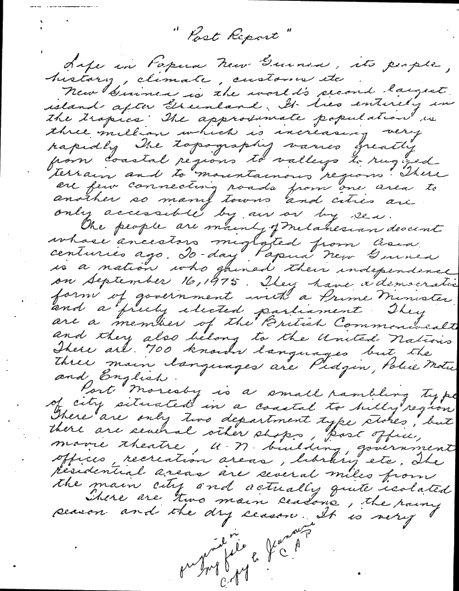 "Post Report"
Life in Papua New Guinea, its people,
history, climate, customs etc
New Guinea is the world's second largest
island after Greenland. It lies entirely in
the tropics. The approximate population is
three million which is increasing very
rapidly The topography varies greatly
from coastal regions to valleys to rugged
terrain and to mountainous regions. There
are few connecting roads from one area to
another so many towns and cities are
only accessible by air or by sea.
The people are mainly of Melanesian descent
whose ancestors migrated from Asia
centuries ago. To-day, Papua New Guinea
is a nation who gained their independence
on September 16, 1975. They have a democratic
form of government with a Prime Minister
and a freely elected parliament They
are a member of the British Commonwealth
and they also belong to the United Nations
There are 700 known languages but the
three main languages are Pidgin, Police Motu
and English.
Port Moresby is a small rambling type
of city situated in a coastal to hilly region
There are only two department type stores, but
there are several other shops, post office,
movie theatre, U.N. building, government
offices, recreation areas, library etc. The
residential areas are several miles from
the main city and actually quite isolated
There are two main seasons, the rainy
season and the dry season. It is very
original in
my file
Copy to Jeannine
C.A.P